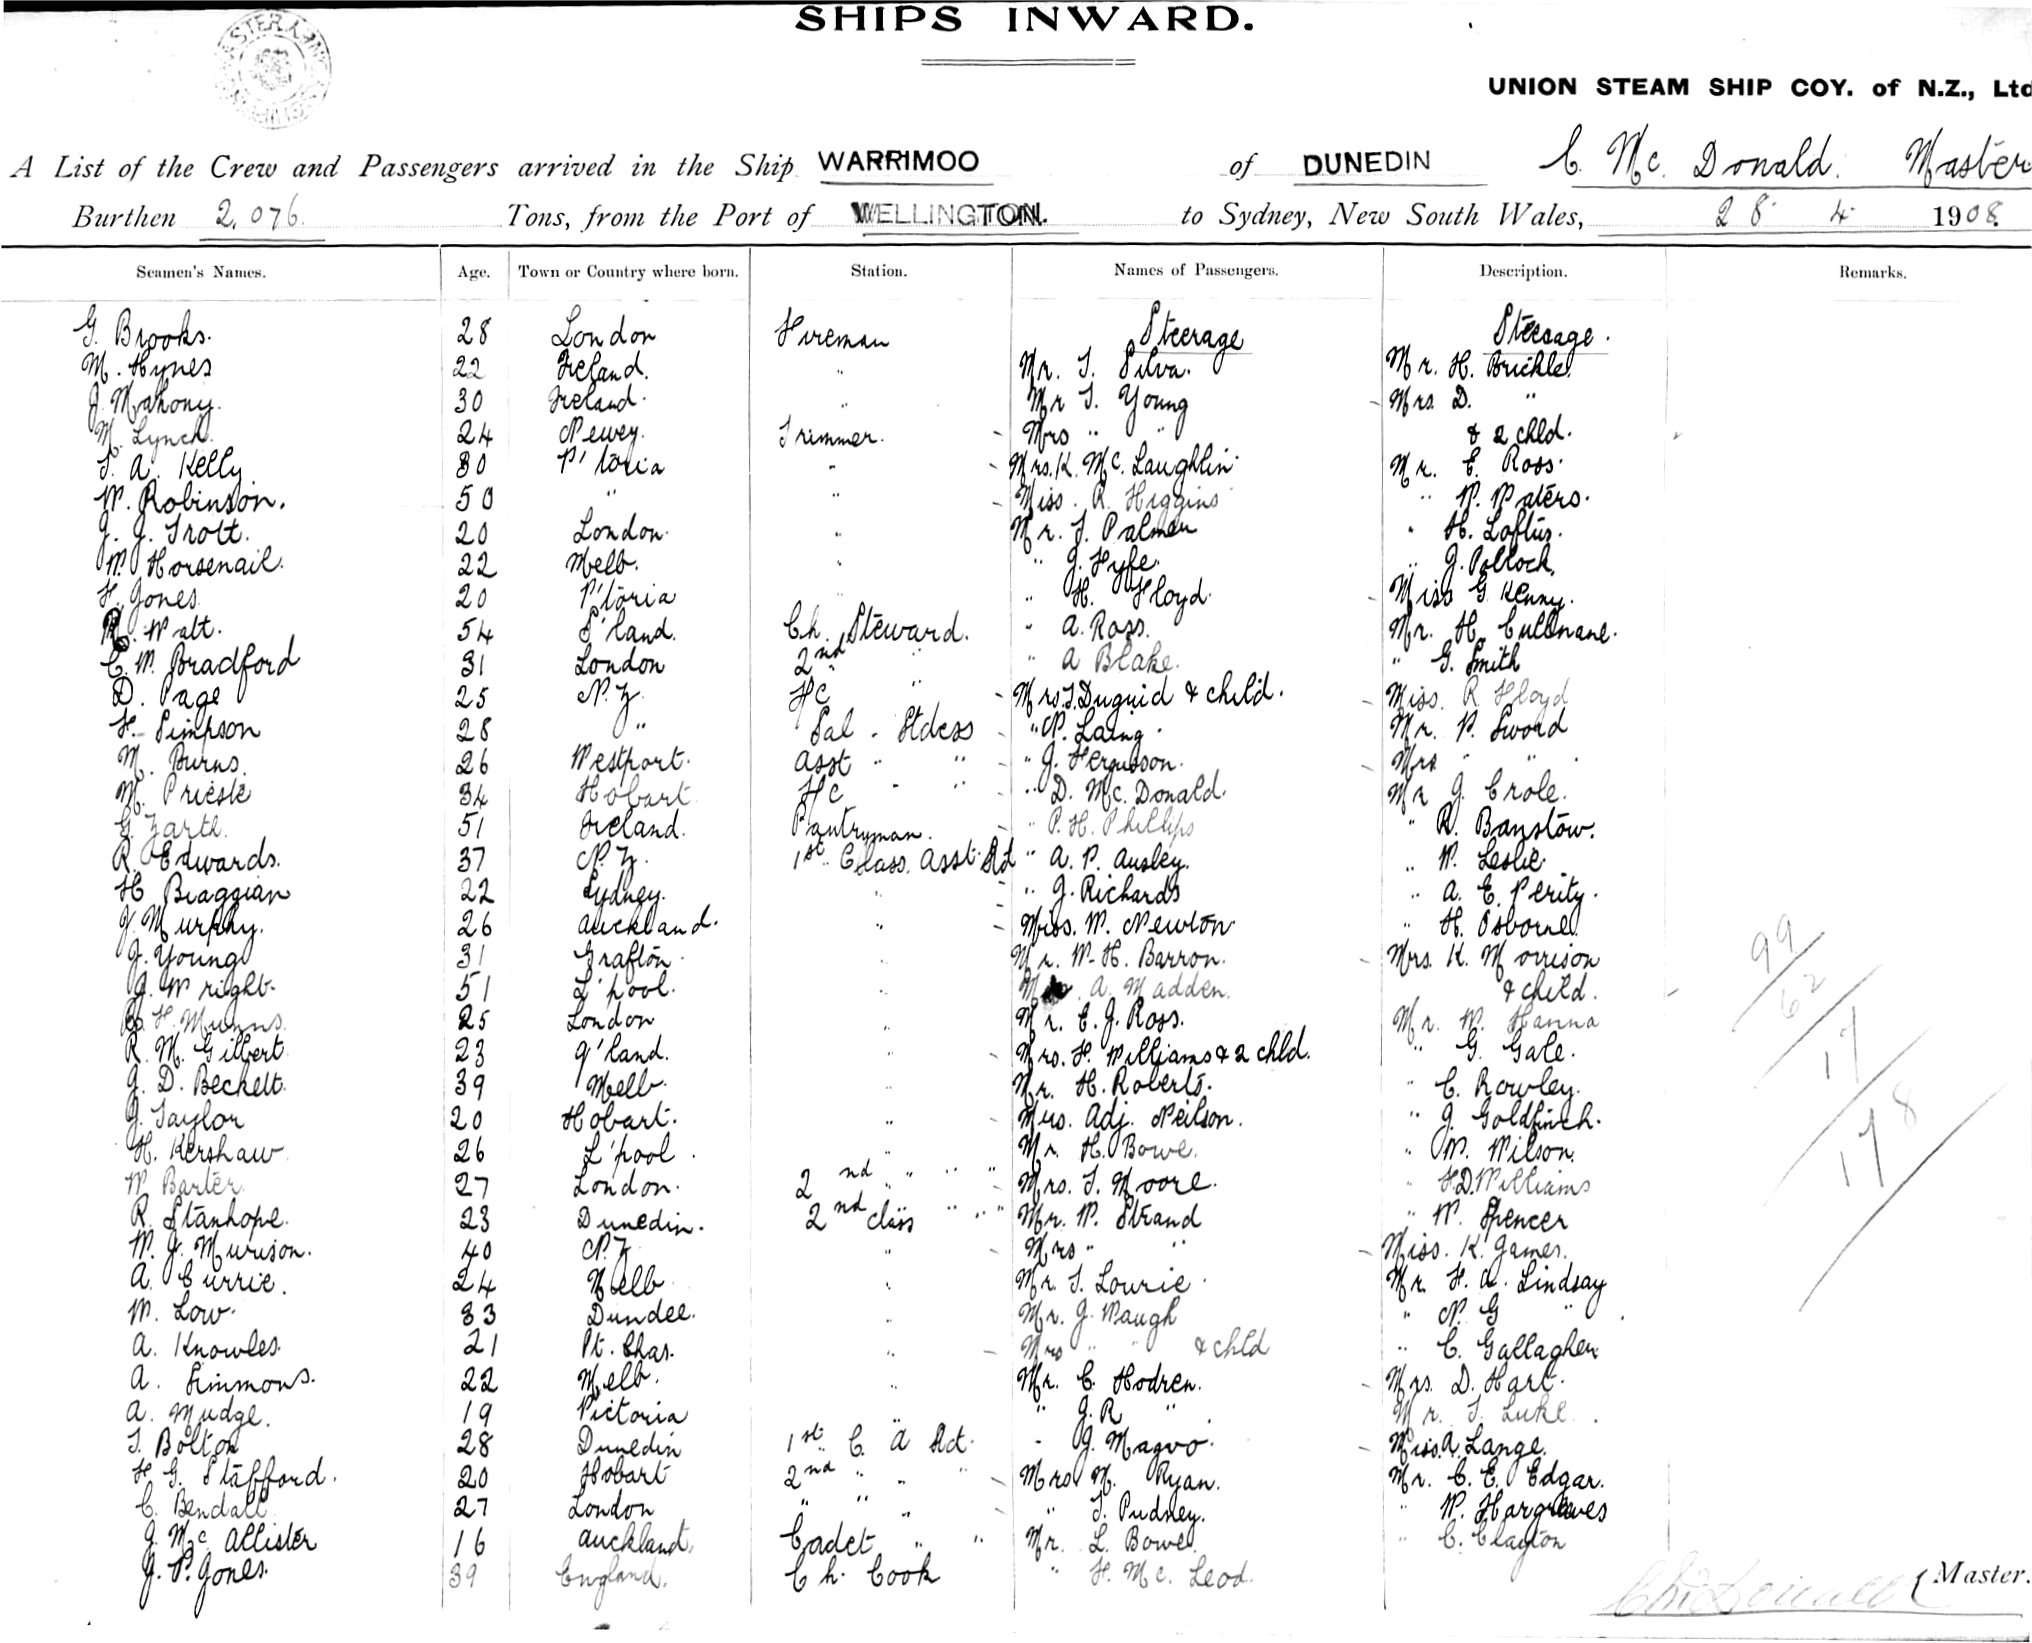 SHIPS INWARD.
UNION STEAM SHIP COY. of N.Z., Ltd
A List of the Crew and Passengers arrived in the Ship WARRIMOO of DUNEDIN C. Mc. Donald. Master
Burthen 2,076. Tons, from the Port of WELLINGTON. to Sydney, New South Wales, 28 4 1908.
Seamen's Names. Age. Town or Country where born. Station. Names of Passengers. Description. Remarks.
G. Brooks. 28 London Fireman Steerage Steerage.
M. Hynes 22 Ireland. " Mr. S. Silva. Mr. H. Brickle.
J. Mahony. 30 Ireland. " Mr T. Young Mrs. D. "
M. Lynch. 24 Newey. Trimmer. Mrs " " & 2 chld.
T. A. Kelly 30 P'toria " Mrs. K. Mc. Laughlin. Mr. E. Ross.
W. Robinson. 50 " " Miss. R. Higgins " W. Waters.
J. J. Trott. 20 London. " Mr. J. Palmer " H. Loftus.
W. Horsenail. 22 Melb. " " J. Fyfe. " J. Pollock.
H. Jones. 20 P'toria " " H. Floyd. Miss G. Kenny.
R. Watt. 54 S'land. Ch. Steward. " A. Ross. Mr. H. Cullinane.
C. W. Bradford 31 London 2nd " " A Blake. " G. Smith
D. Page 25 N.Z. FC " Mrs. T. Duguid & child. Miss. R Floyd
H. Simpson 28 " Sal. Stdess " N. Laing. Mr. P. Sword
M. Burns. 26 Westport. Asst " " " J. Fergusson. Mrs " "
M. Prieste 34 Hobart FC " " " D. Mc. Donald. Mr J. Crole.
G. Zartl. 51 Ireland. Pantryman. " P. H. Phillips " R. Banstow.
R. Edwards. 37 N.Z. 1st Class. Asst. Std " A. P. Ausley. " W. Leslie.
H Biaggian 22 Sydney. " " J. Richards " A. E. Perity.
J. Murphy. 26 Auckland. " Miss. W. Newton " H. Osborne.
J. Young 31 Grafton. " Mr. W. H. Barron. Mrs. K. Morrison
J. Wright. 51 L'pool. " A. Madden. & child.
H. Munns. 25 London " Mr. E. J. Ross. Mr. W. Hanna
R. M. Gilbert. 23 Q'land. " Mrs. H. Williams & 2 chld. " G. Gale.
J. D. Beckett. 39 Melb. " Mr. H. Roberts. " C. Rowley.
J. Taylor 20 Hobart. " Mrs. Adj. Neilson. " J. Goldfinch.
H. Kershaw 26 L'pool. " Mr. H. Bowe. " W. Wilson.
W Barter. 27 London. 2nd " " " Mrs. T. Moore. " F. D. Williams
R. Stanhope. 23 Dunedin. 2nd class " " " Mr. W. Strand " W. Spencer
W. J. Murison. 40 N.Z. " Mrs " " Miss. K. James.
A. Currie. 24 Melb " Mr. T. Lourie. Mr. F. A. Lindsay
W. Low. 33 Dundee. " Mr. J. Waugh " N. G "
A. Knowles. 21 Pt. Chas. " Mrs " " & chld " C. Gallagher
A. Simmons. 22 Melb. " Mr. C. Hodren. Mrs. D. Hart.
A. Mudge. 19 Victoria " " J. R " Mr. T. Luke.
T. Bolton 28 Dunedin 1st C. A Std. " J. Magvo. Miss. A. Lange.
H. G. Stafford. 20 Hobart 2nd " " " Mrs M. Ryan. Mr. C. E. Edgar.
C. Bendall 27 London " " " " T. Pudney. " W. Hargraves
J. Mc Allister 16 Auckland. Cadet " " Mr. L. Bowe " C. Clayton
J. P. Jones. 39 England. Ch. Cook " H. Mc. Leod.
99
62
17
178
Master.